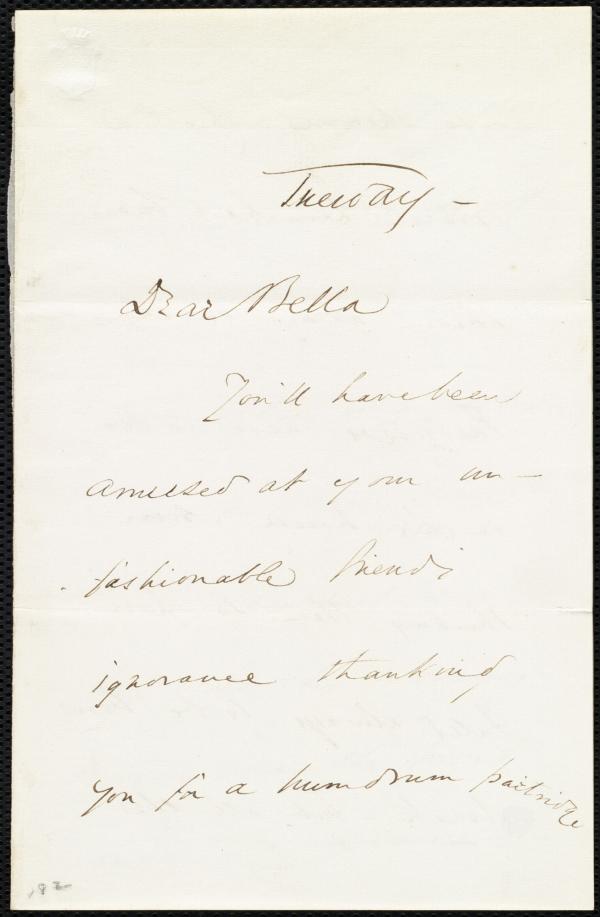 Tuesday –
Dear Bella
You'll have been
amused at your un-
fashionable friend's
ignorance thanking
you for a humdrum partridge